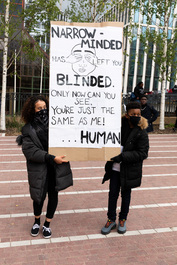 NARROW-
MINDED
HAS LEFT YOU
BLINDED.
ONLY NOW CAN YOU
SEE,
YOU'RE JUST THE
SAME AS ME!
....HUMAN